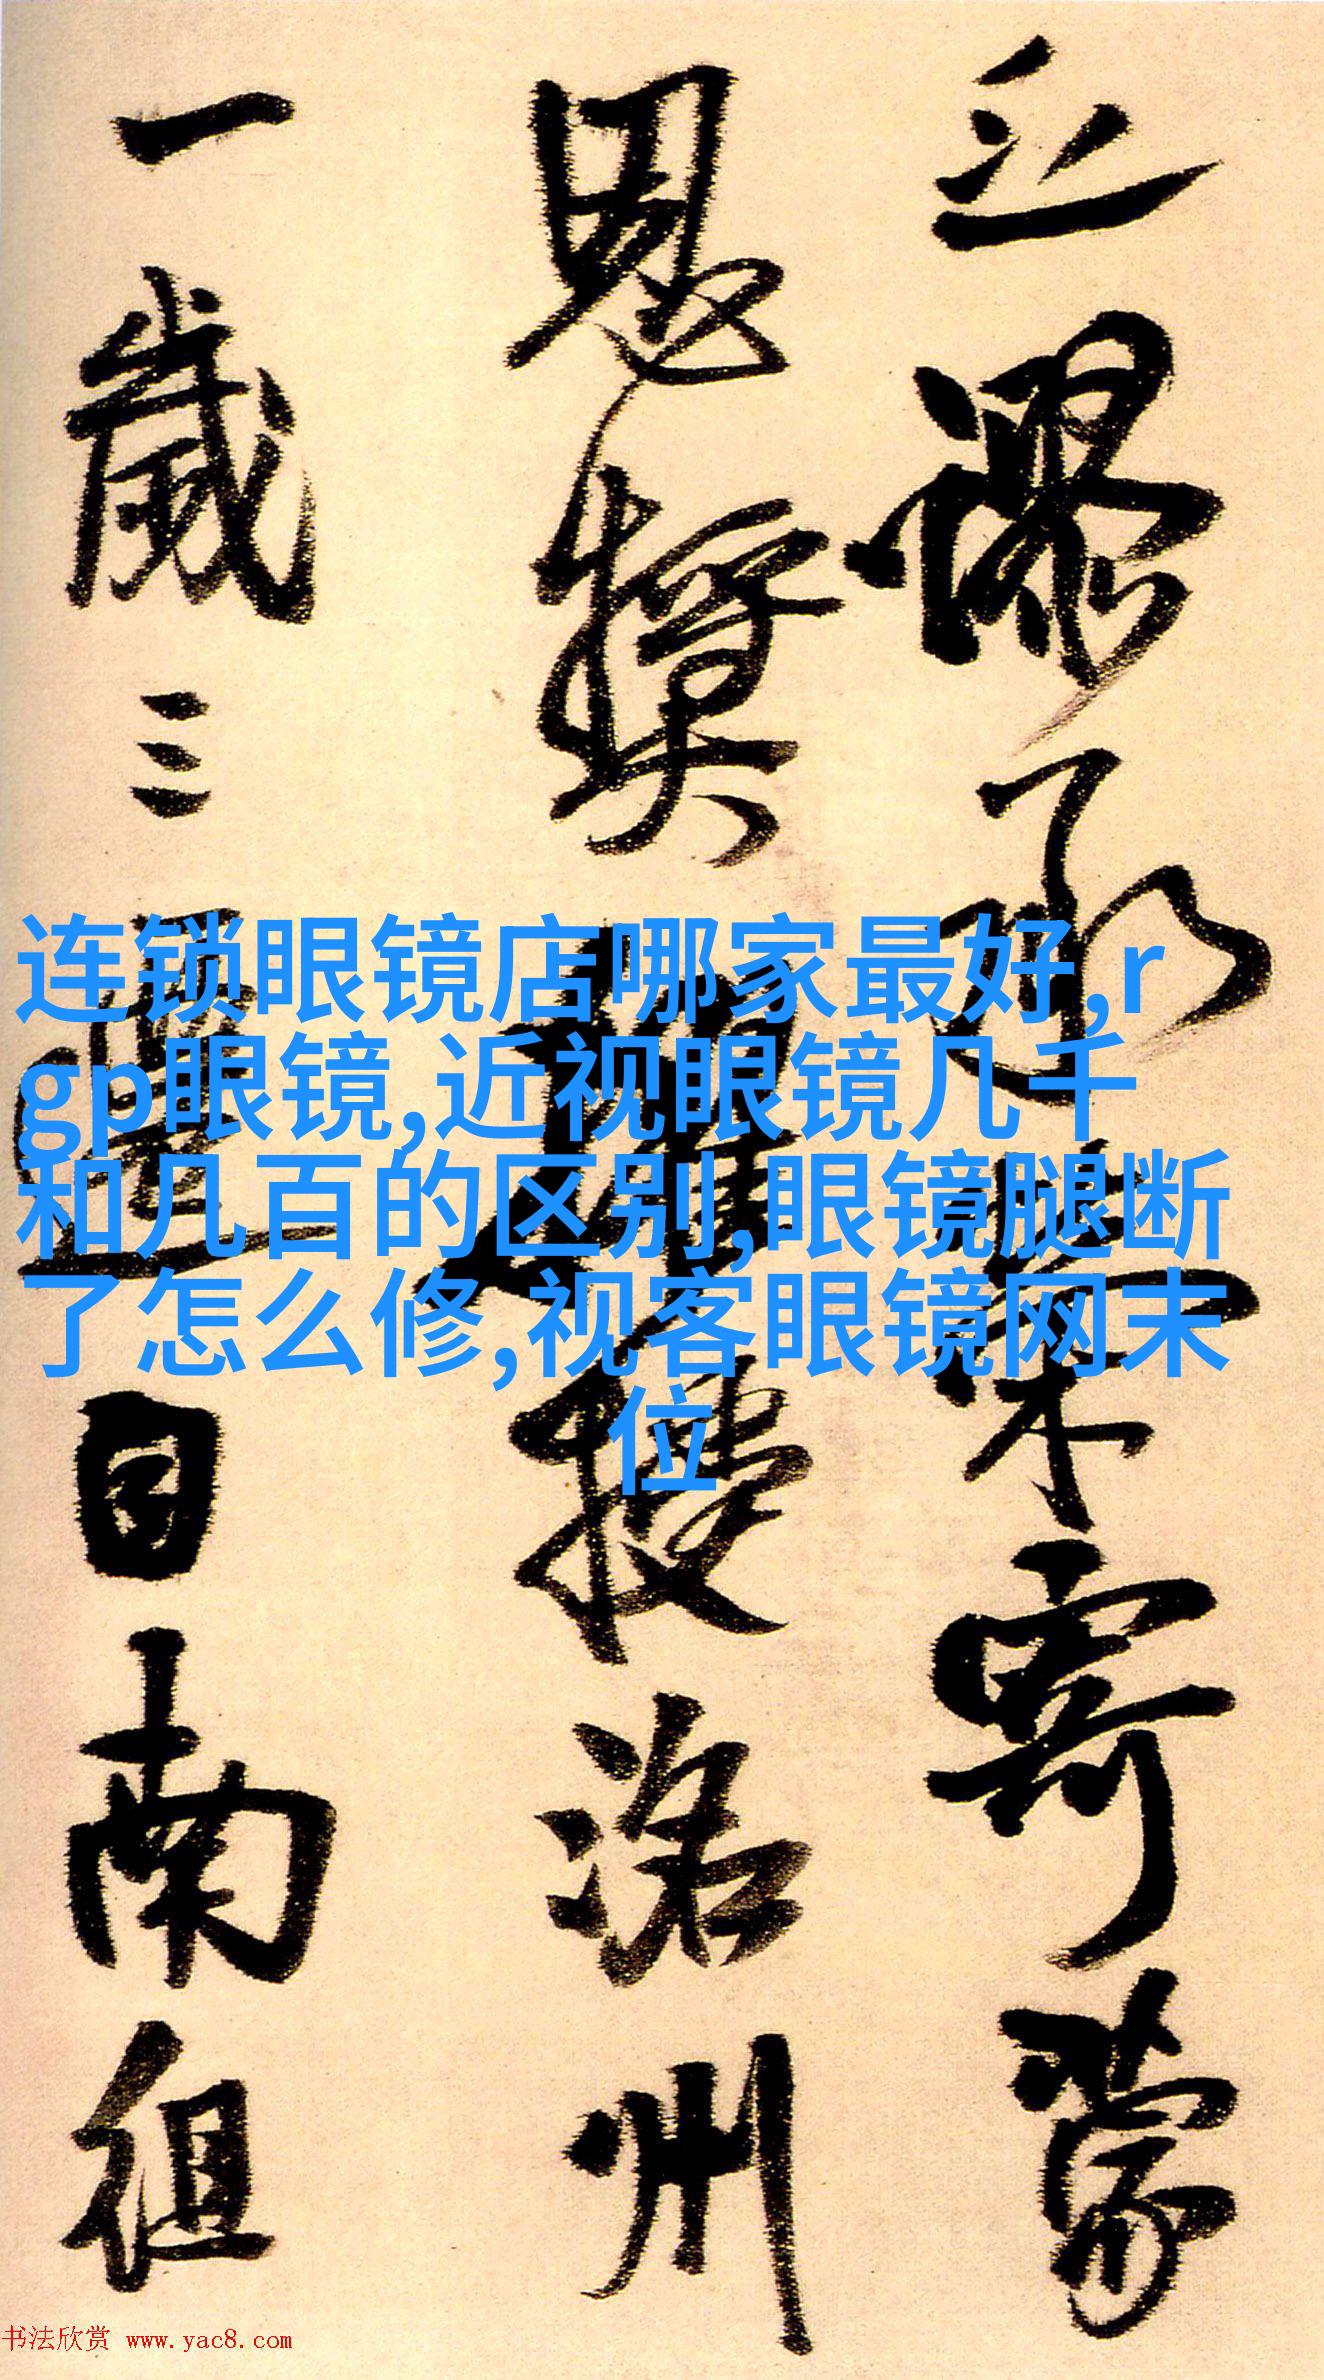 立謬承榮寄蒙
恩獎擢授洛州
一歲三遷自南徂
连锁眼镜店哪家最好,r
gp眼镜,近视眼镜几千
和几百的区别,眼镜腿断
了怎么修,视客眼镜网末
位
书法欣赏 www.yac8.com